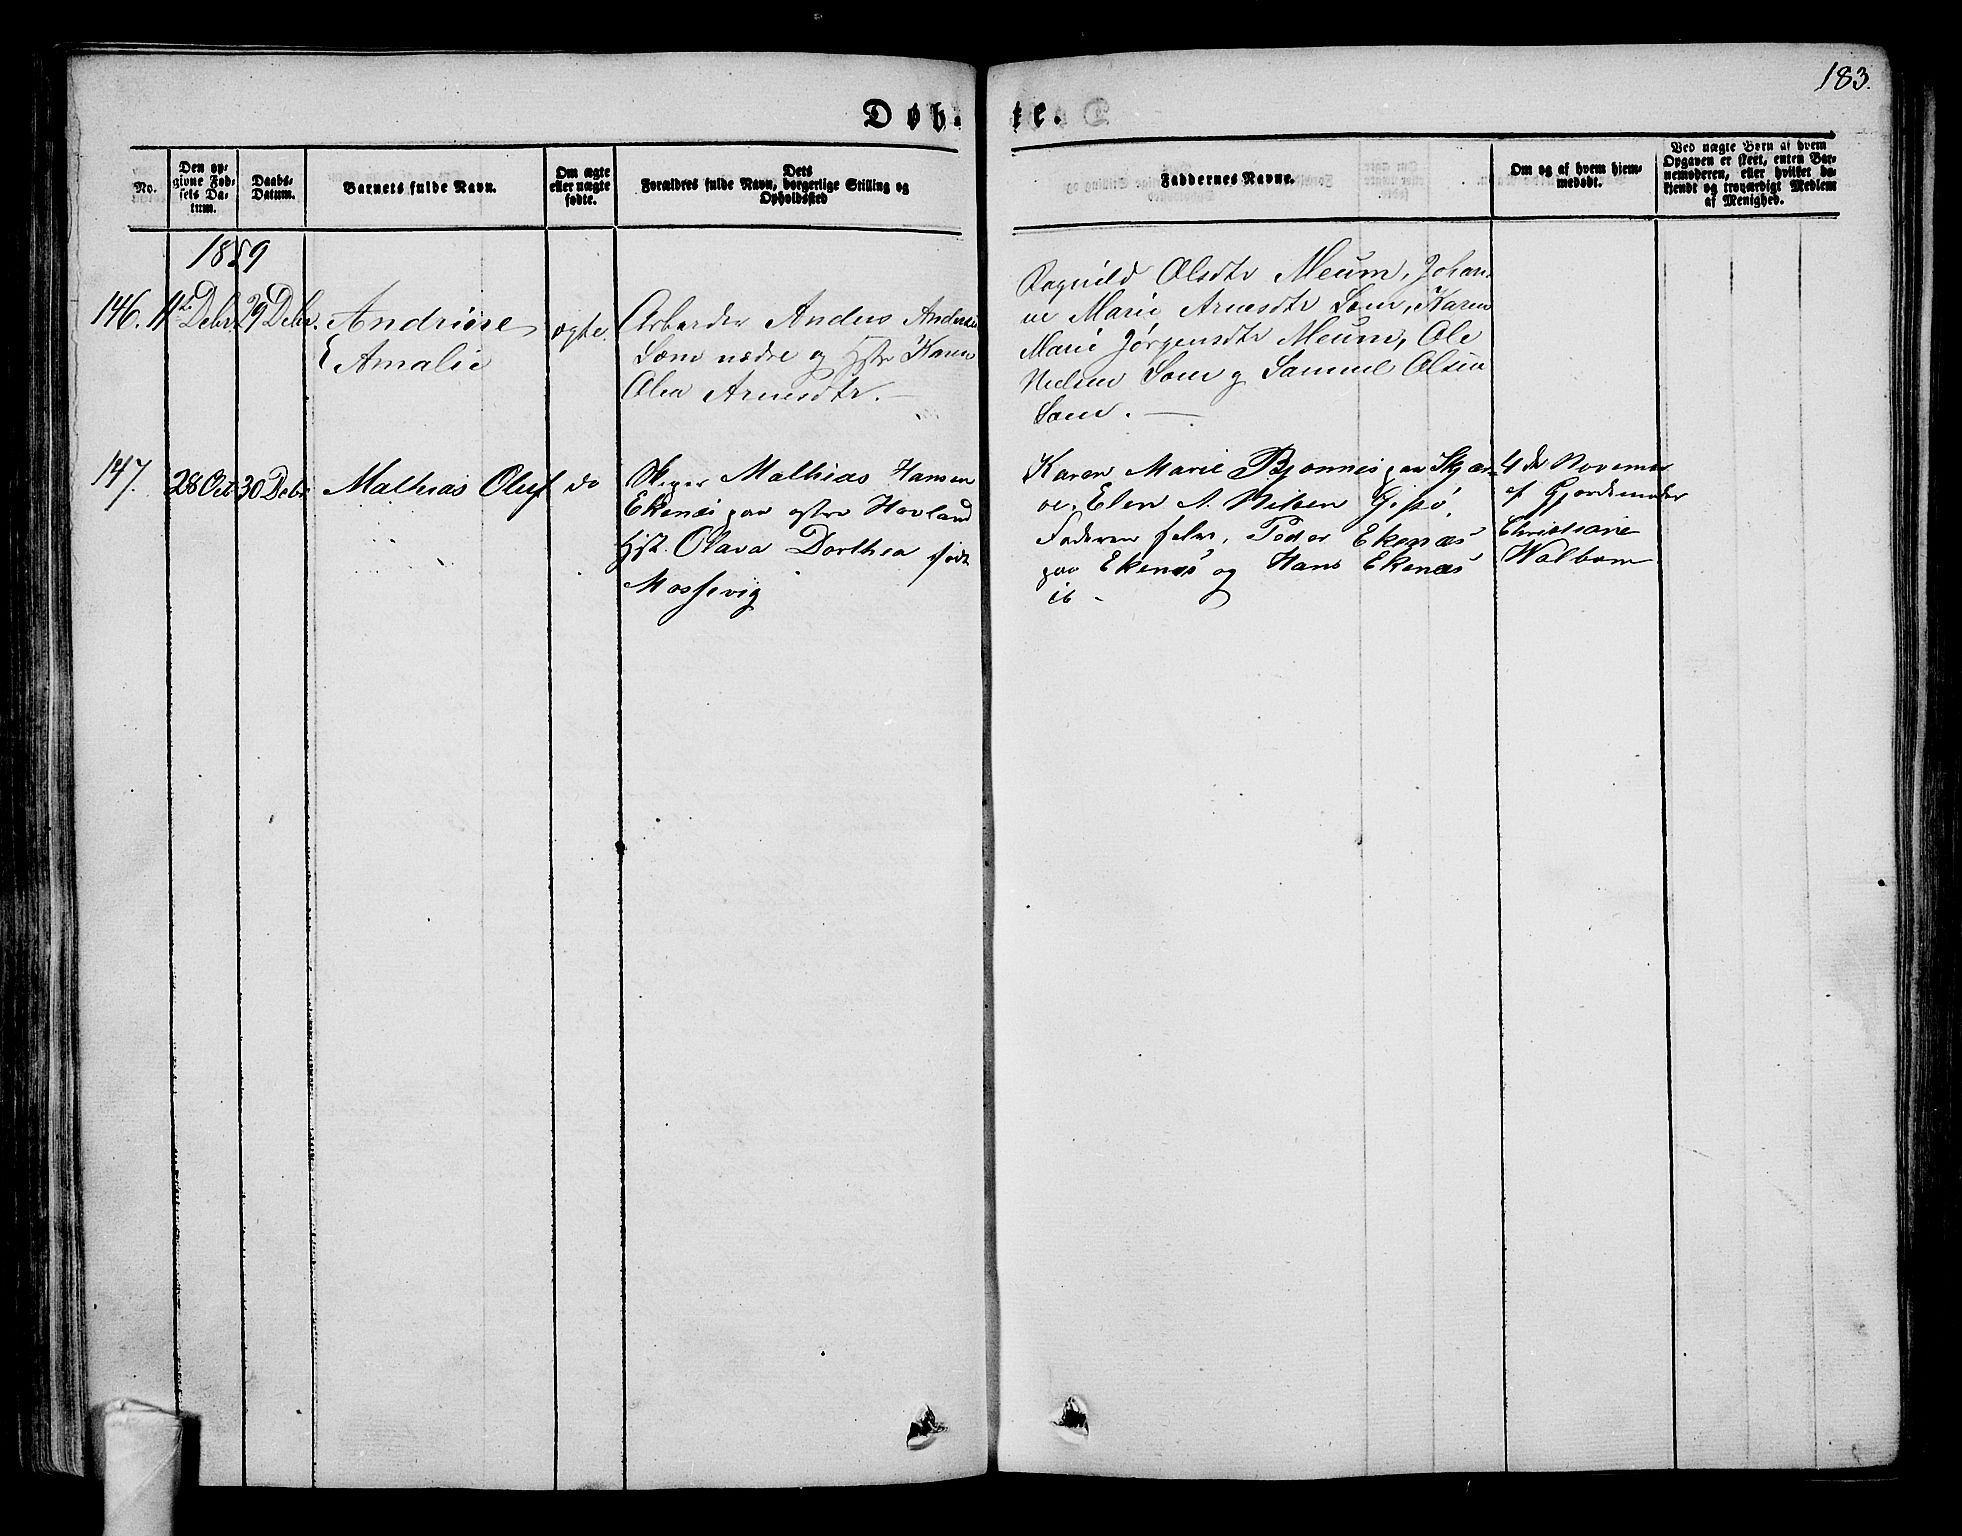 183.
Døb- te.
No.
Den opgivne Fødsels Datum.
Daabs-Datum.
Barnets fulde Navn.
Om ægte eller uægte fødte.
Dets Forældres fulde Navn, borgerlige Stilling og Opholdssted
Faddernes Navne.
Om og af hvem hjemmedøbt.
Ved uægte Børn af hvem Opgaven er skeet, enten Barnemoderen, eller hvilket bekjendt og troværdigt Medlem af Menighed.
1859
146. 11te Debr. 29 Debr. Andrine
Amalie
ægte.
Arbeider Anders Anders
Som nedre og Hstr Karen
Olea Arnesdtr.
Ragnild Olsdtr Meum, Johan-
ne Marie Arnesdtr Som, Karen
Marie Jørgensdtr Meum, Ole
Nielsen Som og Samuel Olsen
Som.
147. 28 Oct 30 Debr Mathias Oluf do
Mathias Hansen
Ekenæs paa østre Havland
Hst. Olava Dorthea født
Mossevig
Karen Marie Bjønnes paa Skjær-
ve, Elen A. Nilsen Gjesø,
Faderen selv, Peder Ekenæs
paa Ekenæs og Hans Ekenæs
ib -
4de November
af Gjordemoder
Christiane
Walbom